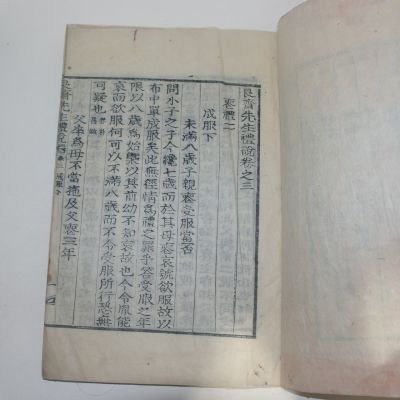 艮齋先生禮說卷之三
喪禮二
成服下
未滿八歲子親喪受服當否
問小子之子今纔七歲而於其母喪哀號欲服故以
布中單成服矣此無徑情爲禮之罪乎答受服之年
限以八歲爲始檃以其前幼不知哀故也今令胤能
哀而欲服何可以不滿八歲而不令受服所行恐無
可疑也
父卒爲母不當拖及父喪三年
艮齋先生禮說 卷三 成服下 一